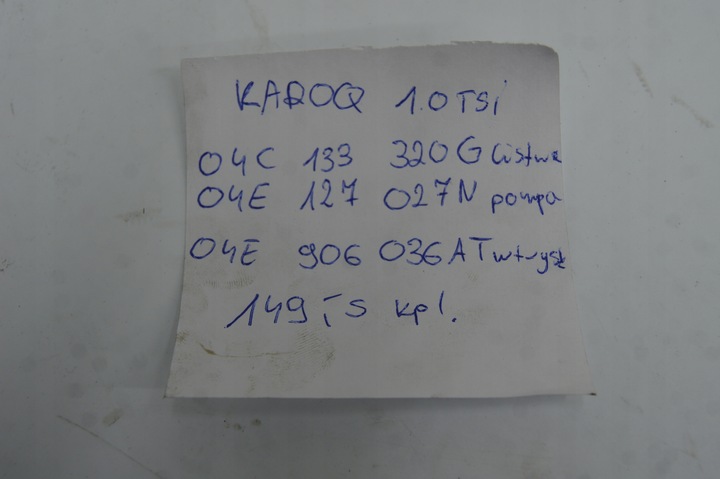 KAROQ 1.0 TSi
04C 133 320 G listwa
04E 127 027 N pompa
04E 906 036 AT wtrysk
149,- S kpl.